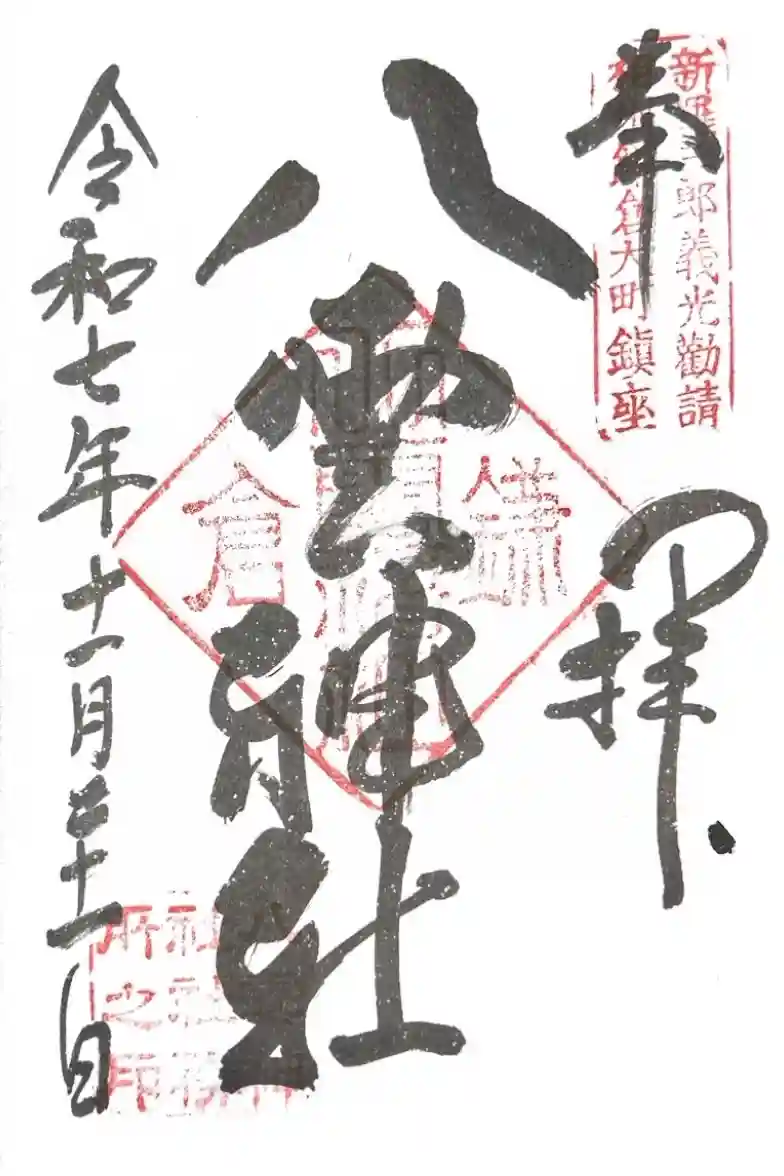 奉拝
新羅三郎義光勧請
相州鎌倉大町鎮座
八雲神社
鎌倉
八雲神社
令和七年十一月二十一日
八雲神社社務所之印